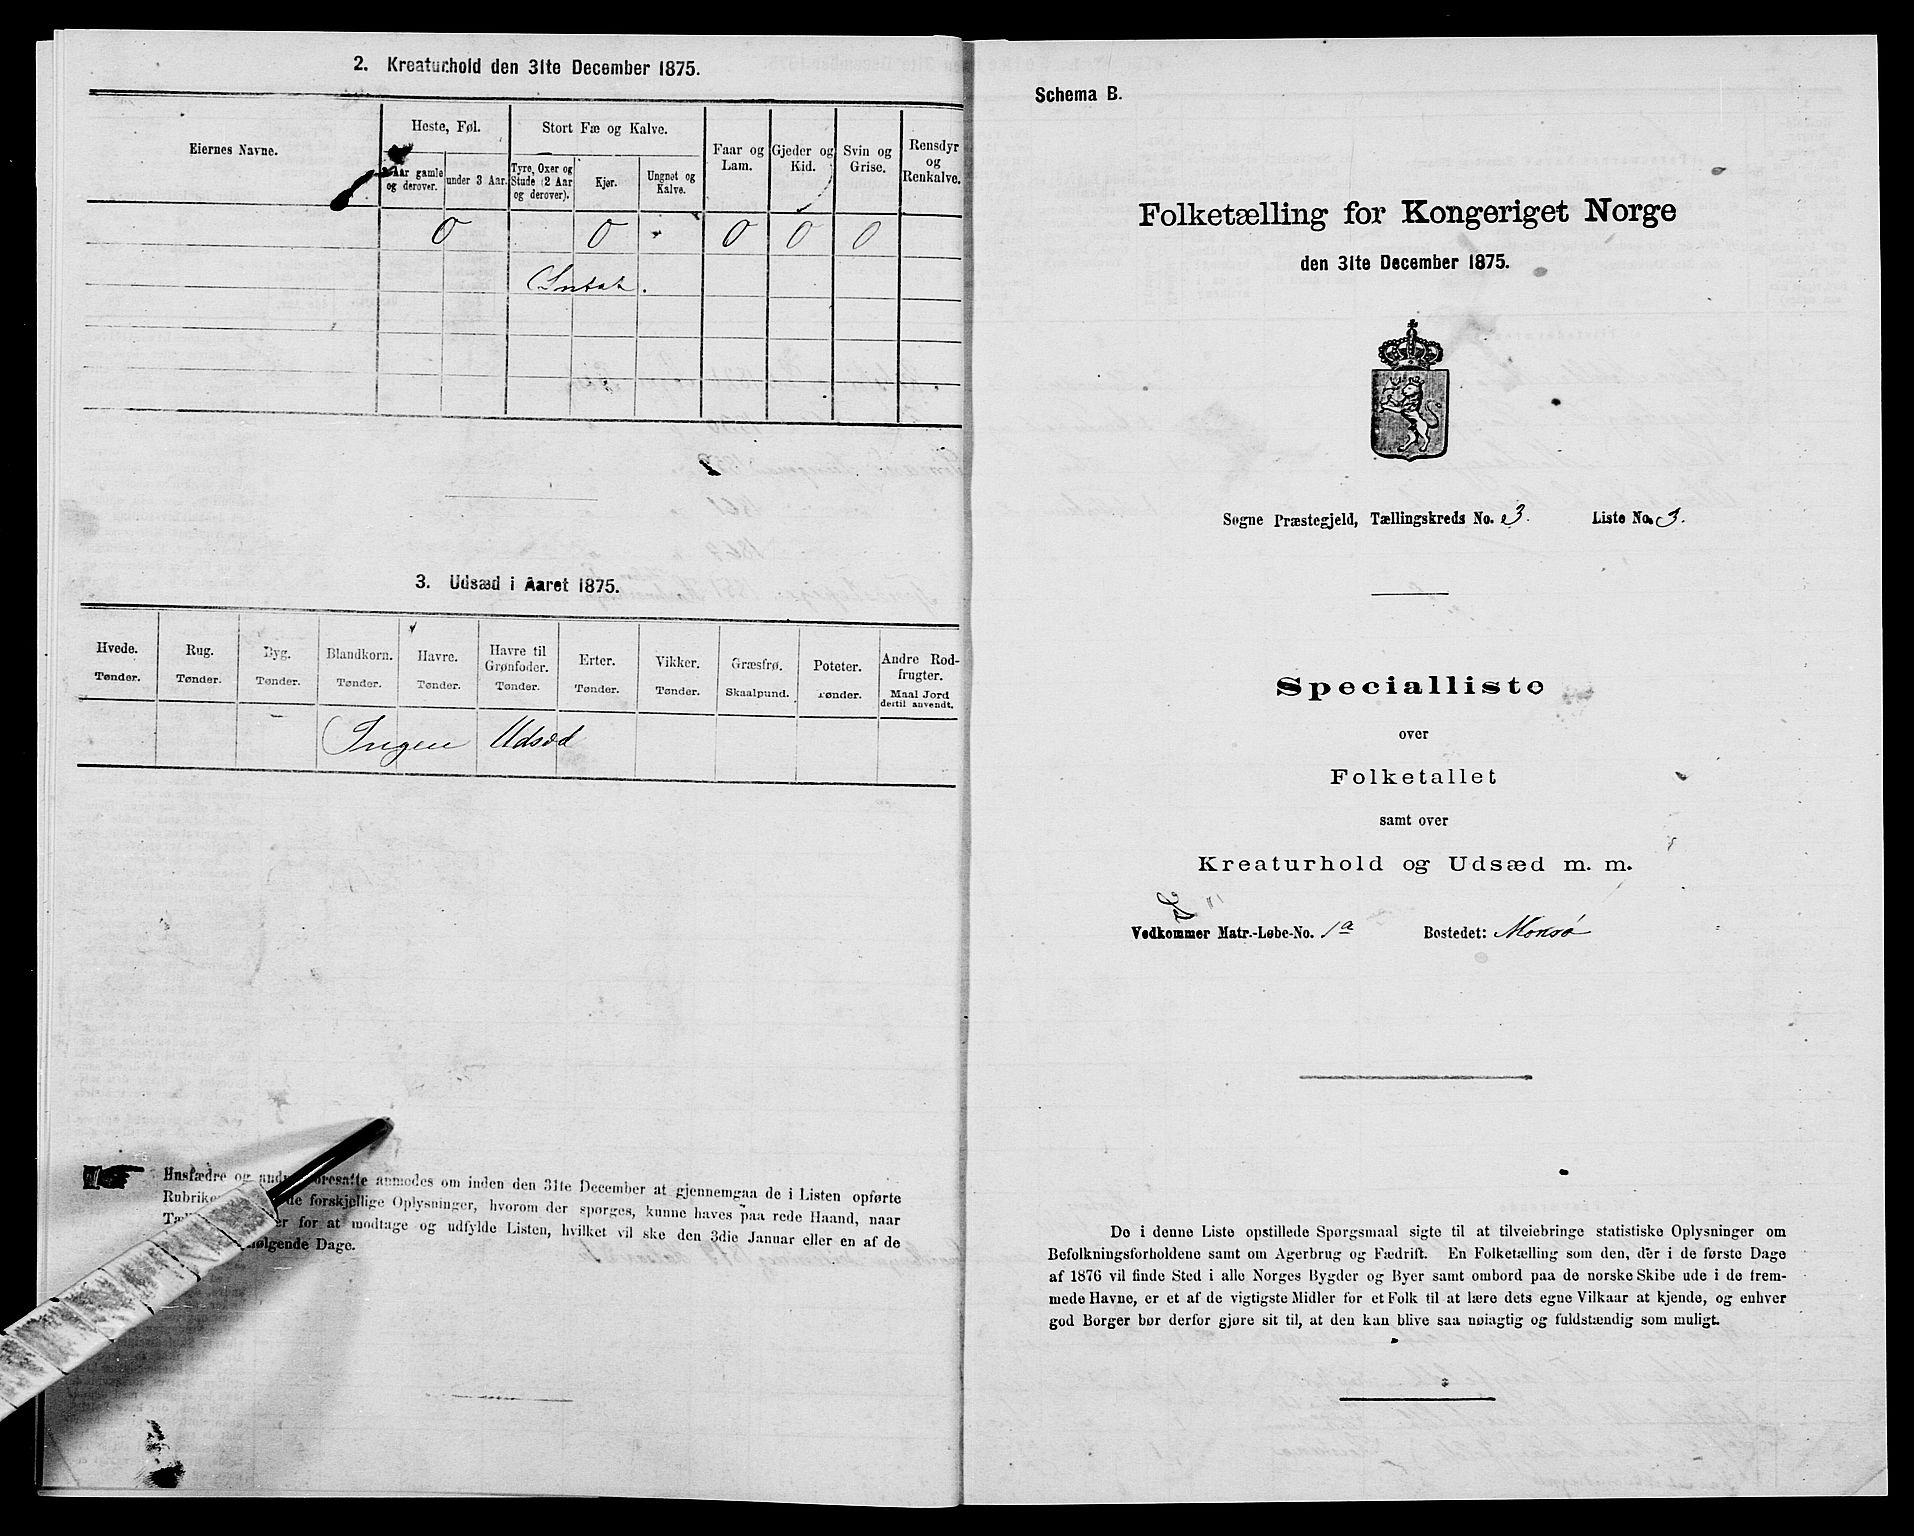 2. Kreaturhold den 31te December 1875.
Eiernes Navne.
Heste, Føl.
3 Aar gamle og derover.
under 3 Aar.
Stort Fæ og Kalve.
Tyre, Oxer og Stude (2 Aar og derover).
Kjør.
Ungnøt og Kalve.
Faar og Lam.
Gjeder og Kid.
Svin og Grise.
Rensdyr og Renkalve.
0 0 0 0 0
3. Udsæd i Aaret 1875.
Hvede. Tønder.
Rug. Tønder.
Byg. Tønder.
Blandkorn. Tønder.
Havre. Tønder.
Havre til Grønfoder. Tønder.
Erter. Tønder.
Vikker. Tønder.
Græsfrø. Skaalpund.
Poteter. Tønder.
Andre Rodfrugter. Maal Jord dertil anvendt.
Ingen Udsæd
Husfædre og andre Foresatte anmodes om inden den 31te December at gjennemgaa de i Listen opførte
Rubriker, de forskjellige Oplysninger, hvorom der spørges, kunne haves paa rede Haand, naar
for at modtage og udfylde Listen, hvilket vil ske den 3die Januar eller en af de
følgende Dage.
Schema B.
Folketælling for Kongeriget Norge
den 31te December 1875.
Søgne Præstegjeld, Tællingskreds No. 3. Liste No. 3.
Specialliste
over
Folketallet
samt over
Kreaturhold og Udsæd m. m.
Vedkommer Matr.-Løbe-No. 1a Bostedet: Monsø
De i denne Liste opstillede Spørgsmaal sigte til at tilveiebringe statistiske Oplysninger om
Befolkningsforholdene samt om Agerbrug og Fædrift. En Folketælling som den, der i de første Dage
af 1876 vil finde Sted i alle Norges Bygder og Byer samt ombord paa de norske Skibe ude i de frem-
mede Havne, er et af de vigtigste Midler for et Folk til at lære dets egne Vilkaar at kjende, og enhver
god Borger bør derfor gjøre sit til, at den kan blive saa nøiagtig og fuldstændig som muligt.